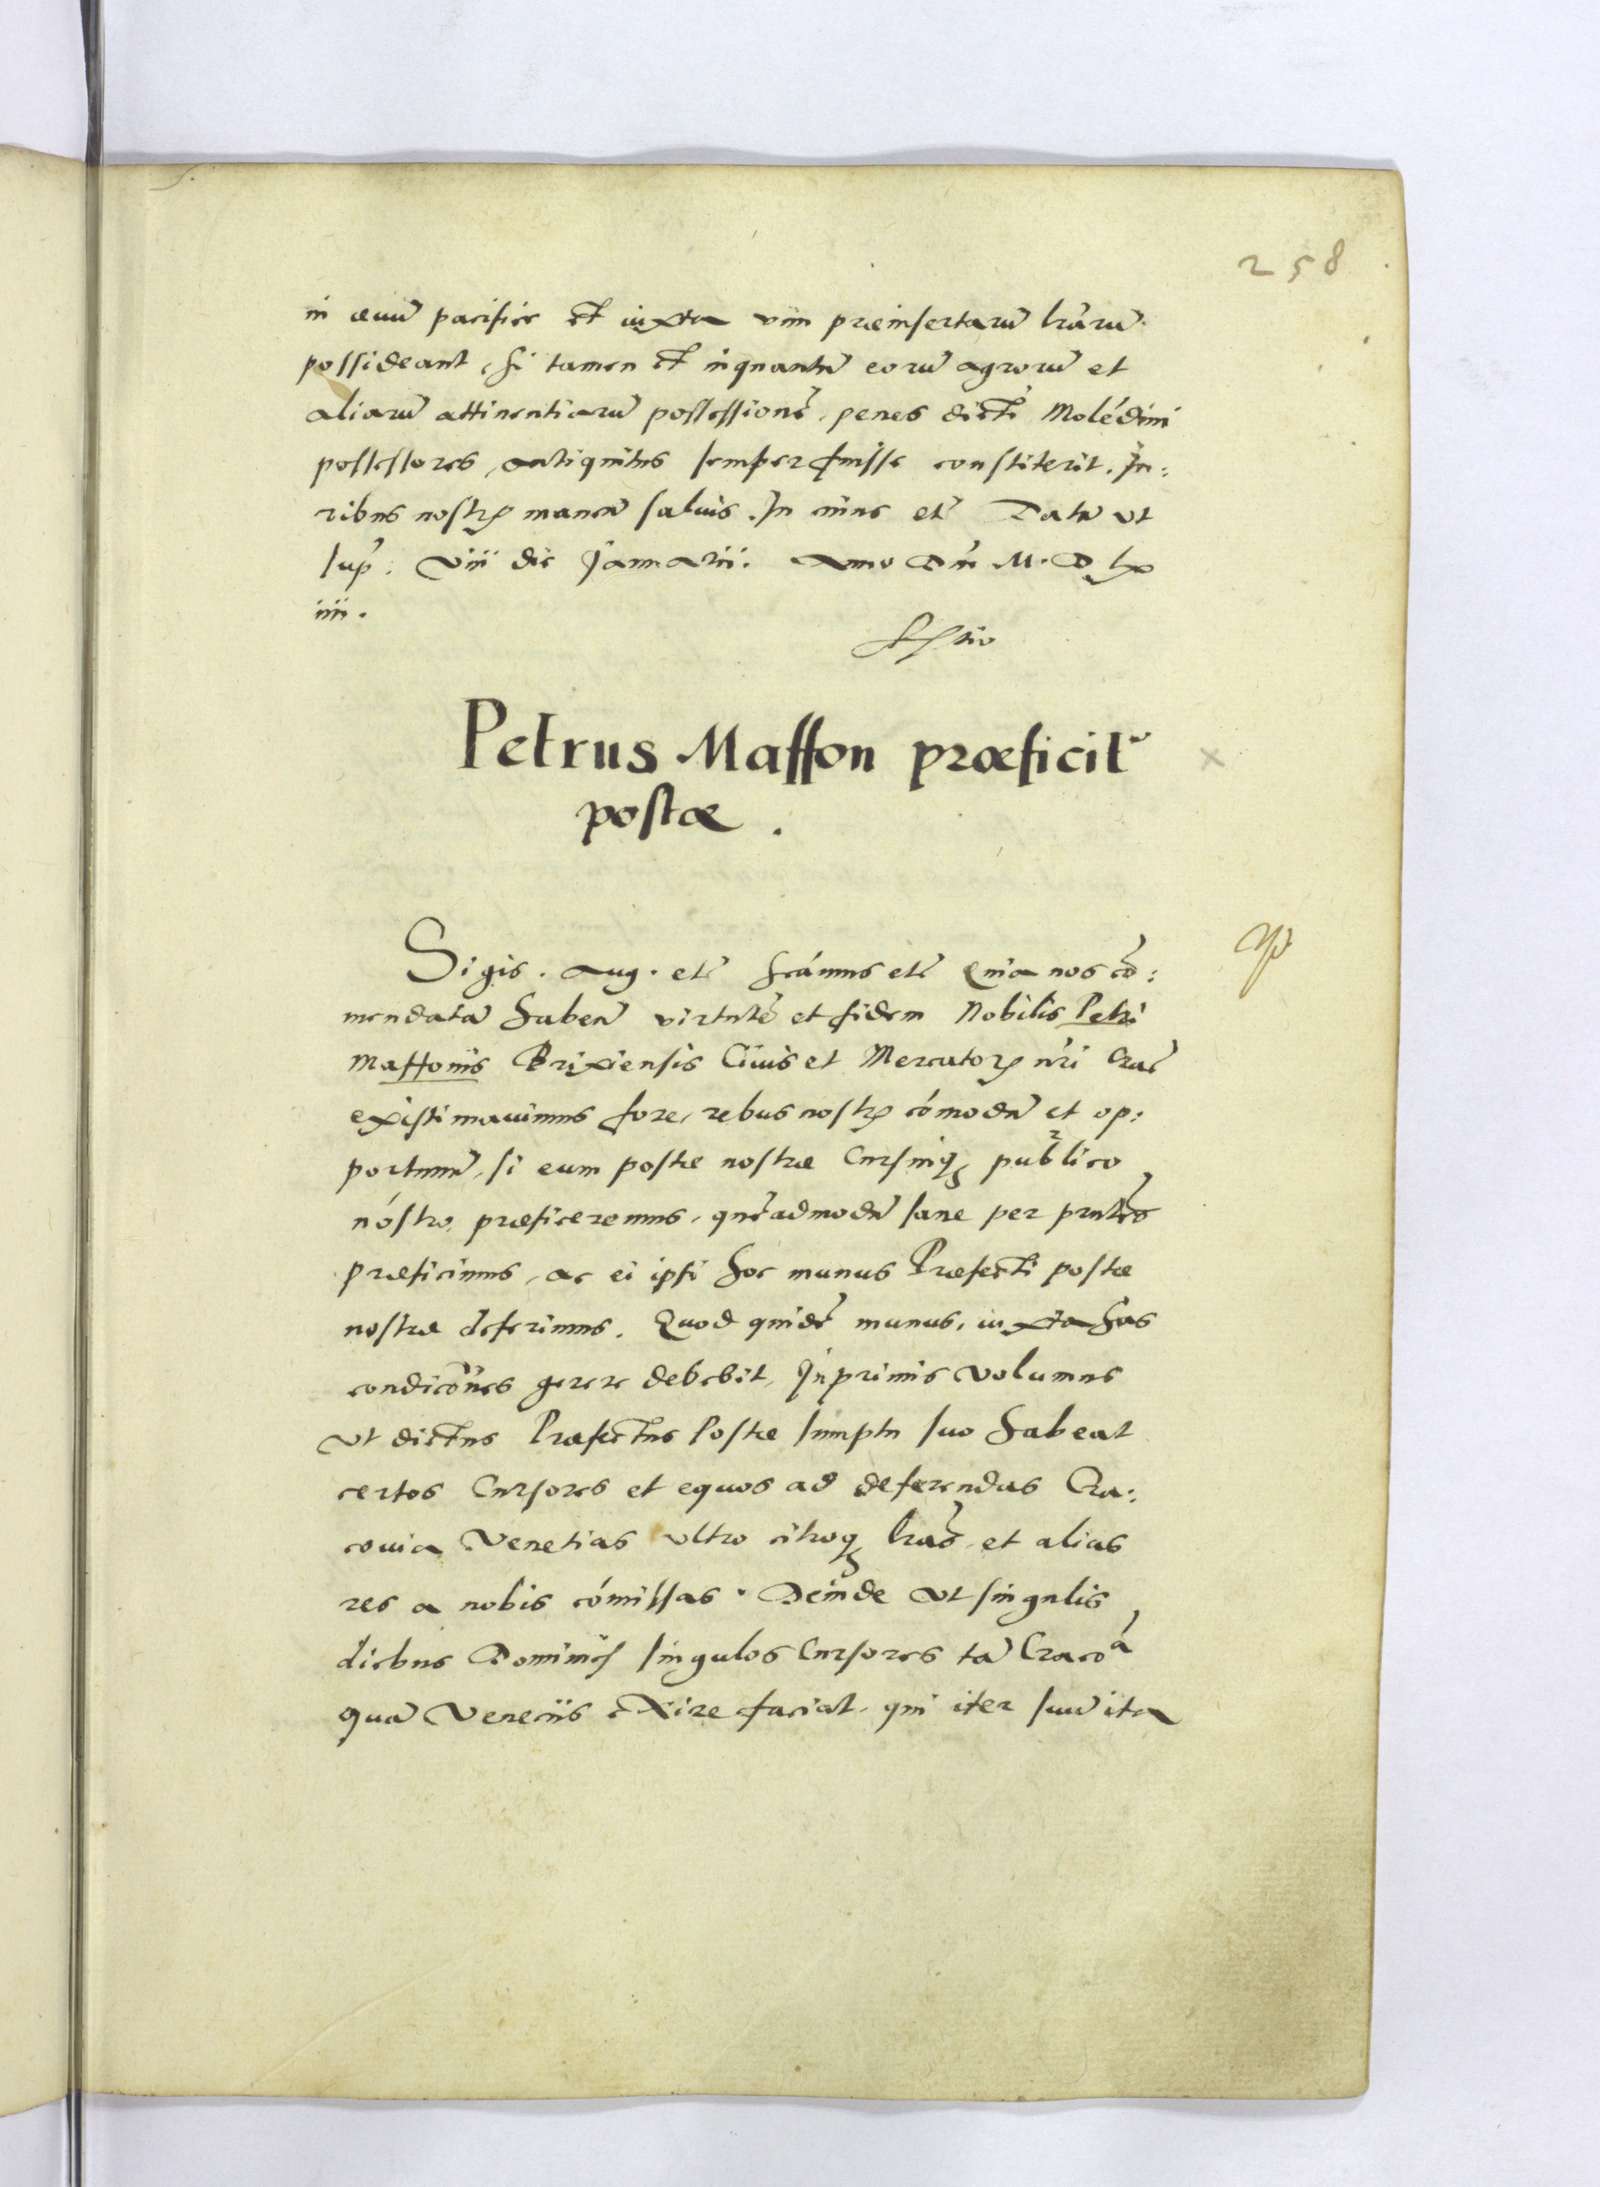 258
in æuũ pacifice et iuxta vim præinsertarũ lrãrũ
possideant, si tamen et inquantũ eorũ agrorũ et
aliarũ attinentiarũ possessionẽ, penes dicti Molẽdini
possessores, antiquitus semper fuisse constiterit. Iu:
ribus nostris manen̄ saluis. In cuius etc̃ Datũ vt
sup̃. viii die Januarii. Anno Dñi M. D. lx
iiii.
Petrus Maffon præficit᷑
postæ.
Sigis. Aug. etc̃ Scãmus etc̃ Quia nos cõ:
mendatã haben̄ virtutẽ et fidem Nobilis Petri
Maffonis Brixiensis Ciuis et Mercatoris nr̃i Crac̃
existimauimus fore, rebus nostris cõmodũ et op:
portunũ, si eum postæ nostræ Cursuiq3 publico
nostro, præficeremus, quẽadmodũ sane per pr̃ntes
præficimus, ac ei ipsi hoc munus Præfecti postæ
nostræ deferimus. Quod quidẽ munus, iuxta has
condicõnes gerere debebit, Inprimis volumus
vt dictus Præfectus Postæ sumptu suo habeat
certos Cursores et equos ad deferendas Cra:
couia Venetias vltro citroq3 lrãs, et alias
res a nobis cõmissas. Deinde vt singulis
diebus Dominicis singulos Cursores tã Craco᷑a
quã Veneciis exire faciat, qui iter suũ ita